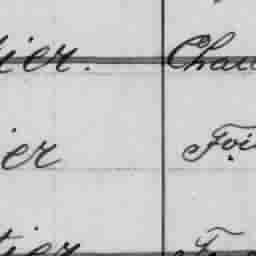 ier. Chau
ier Foi
tier F